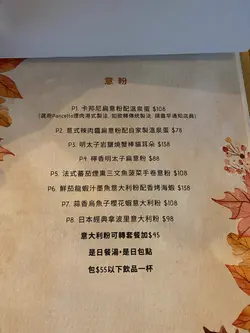 意粉
P1. 卡邦尼扁意粉配溫泉蛋 $108
(選用Pancetta煙肉港式製法, 如欲轉傳統製法, 請農早通知店員)
P2. 意式辣肉醬扁意粉配自家製溫泉蛋 $78
P3. 明太子岩鹽燒蟹棒貓耳朵 $138
P4. 檸香明太子扁意粉 $88
P5. 法式蕃茄煙熏三文魚菠菜手卷意粉 $108
P6. 鮮茄龍蝦汁墨魚意大利粉配香烤海蝦 $138
P7. 蒜香烏魚子櫻花蝦意大利粉 $108
P8. 日本經典拿波里意大利粉 $98
意大利粉可轉套餐加$45
是日餐湯+是日包點
包$35以下飲品一杯